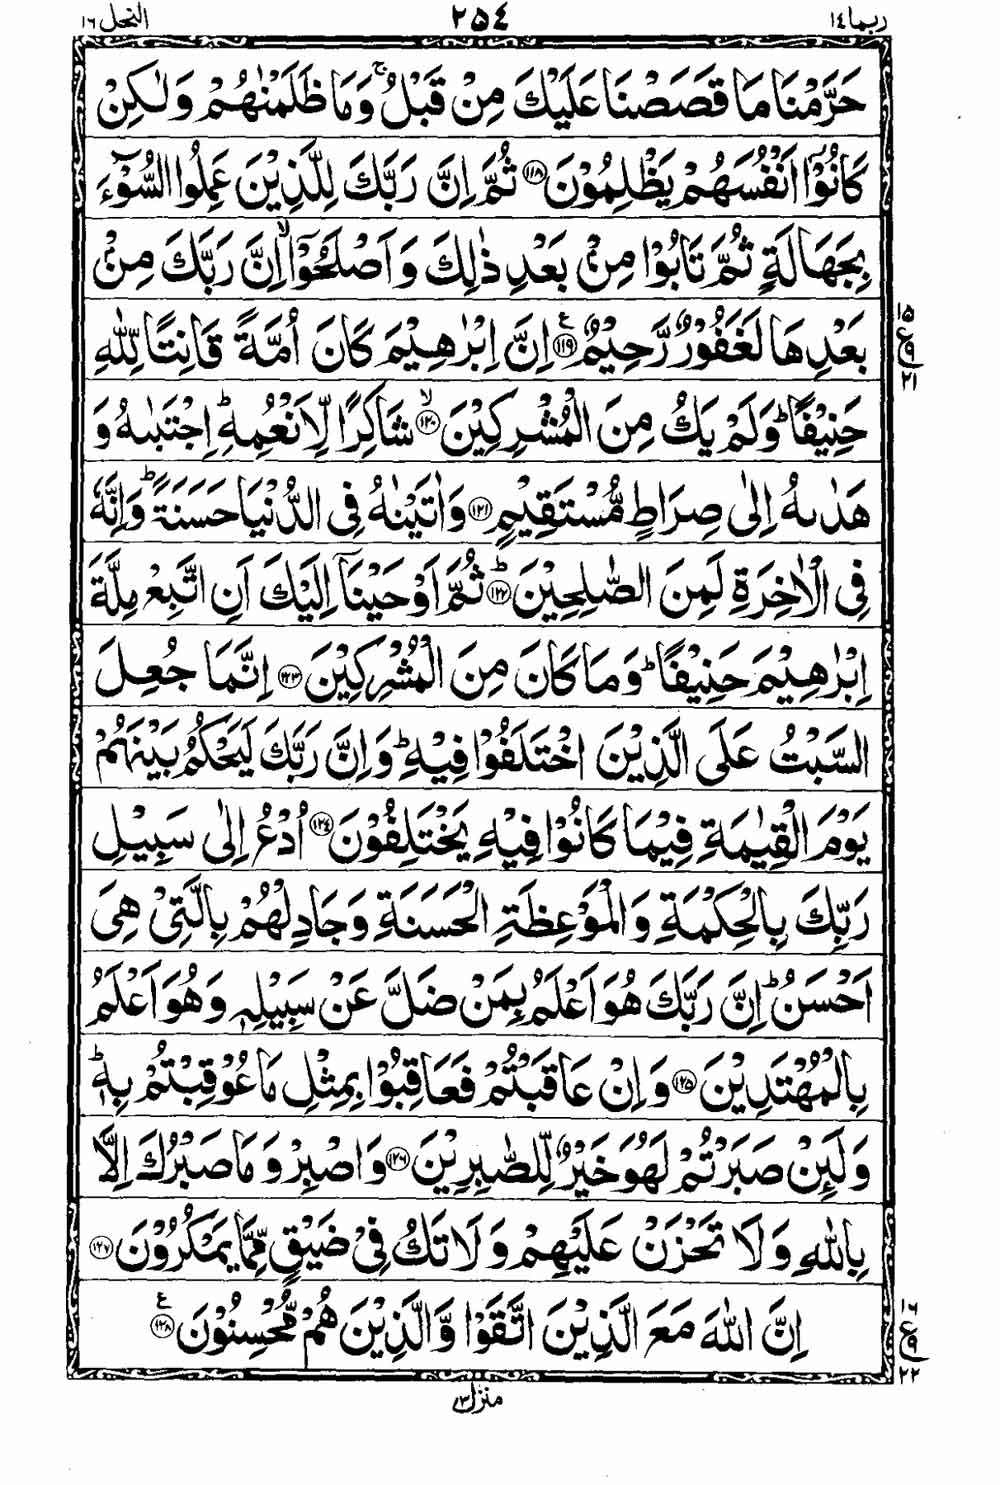 ربما ١٤ ٢٥٤ النحل ١٦
حَرَّمْنَا مَا قَصَصْنَا عَلَيْكَ مِنْ قَبْلُ ۚ وَمَا ظَلَمْنٰهُمْ وَلٰكِنْ
كَانُوْۤا اَنْفُسَهُمْ يَظْلِمُوْنَ ﴿١١٨﴾ ثُمَّ اِنَّ رَبَّكَ لِلَّذِيْنَ عَمِلُوا السُّوْٓءَ
بِجَهَالَةٍ ثُمَّ تَابُوْا مِنْۢ بَعْدِ ذٰلِكَ وَاَصْلَحُوْۤا ۙ اِنَّ رَبَّكَ مِنْۢ
بَعْدِهَا لَغَفُوْرٌ رَّحِيْمٌ ﴿١١٩﴾ ع اِنَّ اِبْرٰهِيْمَ كَانَ اُمَّةً قَانِتًا لِّلّٰهِ
١٥ ع ٩ ٢١
حَنِيْفًا ؕ وَلَمْ يَكُ مِنَ الْمُشْرِكِيْنَ ۙ ﴿١٢٠﴾ شَاكِرًا لِّاَنْعُمِهٖ ؕ اِجْتَبٰىهُ وَ
هَدٰىهُ اِلٰى صِرَاطٍ مُّسْتَقِيْمٍ ﴿١٢١﴾ وَاٰتَيْنٰهُ فِى الدُّنْيَا حَسَنَةً ؕ وَاِنَّهٗ
فِى الْاٰخِرَةِ لَمِنَ الصّٰلِحِيْنَ ؕ ﴿١٢٢﴾ ثُمَّ اَوْحَيْنَاۤ اِلَيْكَ اَنِ اتَّبِعْ مِلَّةَ
اِبْرٰهِيْمَ حَنِيْفًا ؕ وَمَا كَانَ مِنَ الْمُشْرِكِيْنَ ﴿١٢٣﴾ اِنَّمَا جُعِلَ
السَّبْتُ عَلَى الَّذِيْنَ اخْتَلَفُوْا فِيْهِ ؕ وَاِنَّ رَبَّكَ لَيَحْكُمُ بَيْنَهُمْ
يَوْمَ الْقِيٰمَةِ فِيْمَا كَانُوْا فِيْهِ يَخْتَلِفُوْنَ ﴿١٢٤﴾ اُدْعُ اِلٰى سَبِيْلِ
رَبِّكَ بِالْحِكْمَةِ وَالْمَوْعِظَةِ الْحَسَنَةِ وَجَادِلْهُمْ بِالَّتِىْ هِىَ
اَحْسَنُ ؕ اِنَّ رَبَّكَ هُوَ اَعْلَمُ بِمَنْ ضَلَّ عَنْ سَبِيْلِهٖ وَهُوَ اَعْلَمُ
بِالْمُهْتَدِيْنَ ﴿١٢٥﴾ وَاِنْ عَاقَبْتُمْ فَعَاقِبُوْا بِمِثْلِ مَا عُوْقِبْتُمْ بِهٖ ؕ
وَلَئِنْ صَبَرْتُمْ لَهُوَ خَيْرٌ لِّلصّٰبِرِيْنَ ﴿١٢٦﴾ وَاصْبِرْ وَمَا صَبْرُكَ اِلَّا
بِاللّٰهِ وَلَا تَحْزَنْ عَلَيْهِمْ وَلَا تَكُ فِىْ ضَيْقٍ مِّمَّا يَمْكُرُوْنَ ﴿١٢٧﴾
اِنَّ اللّٰهَ مَعَ الَّذِيْنَ اتَّقَوْا وَّالَّذِيْنَ هُمْ مُّحْسِنُوْنَ ﴿١٢٨﴾ ع
١٦ ع ٩ ٢٢
منزل ٣